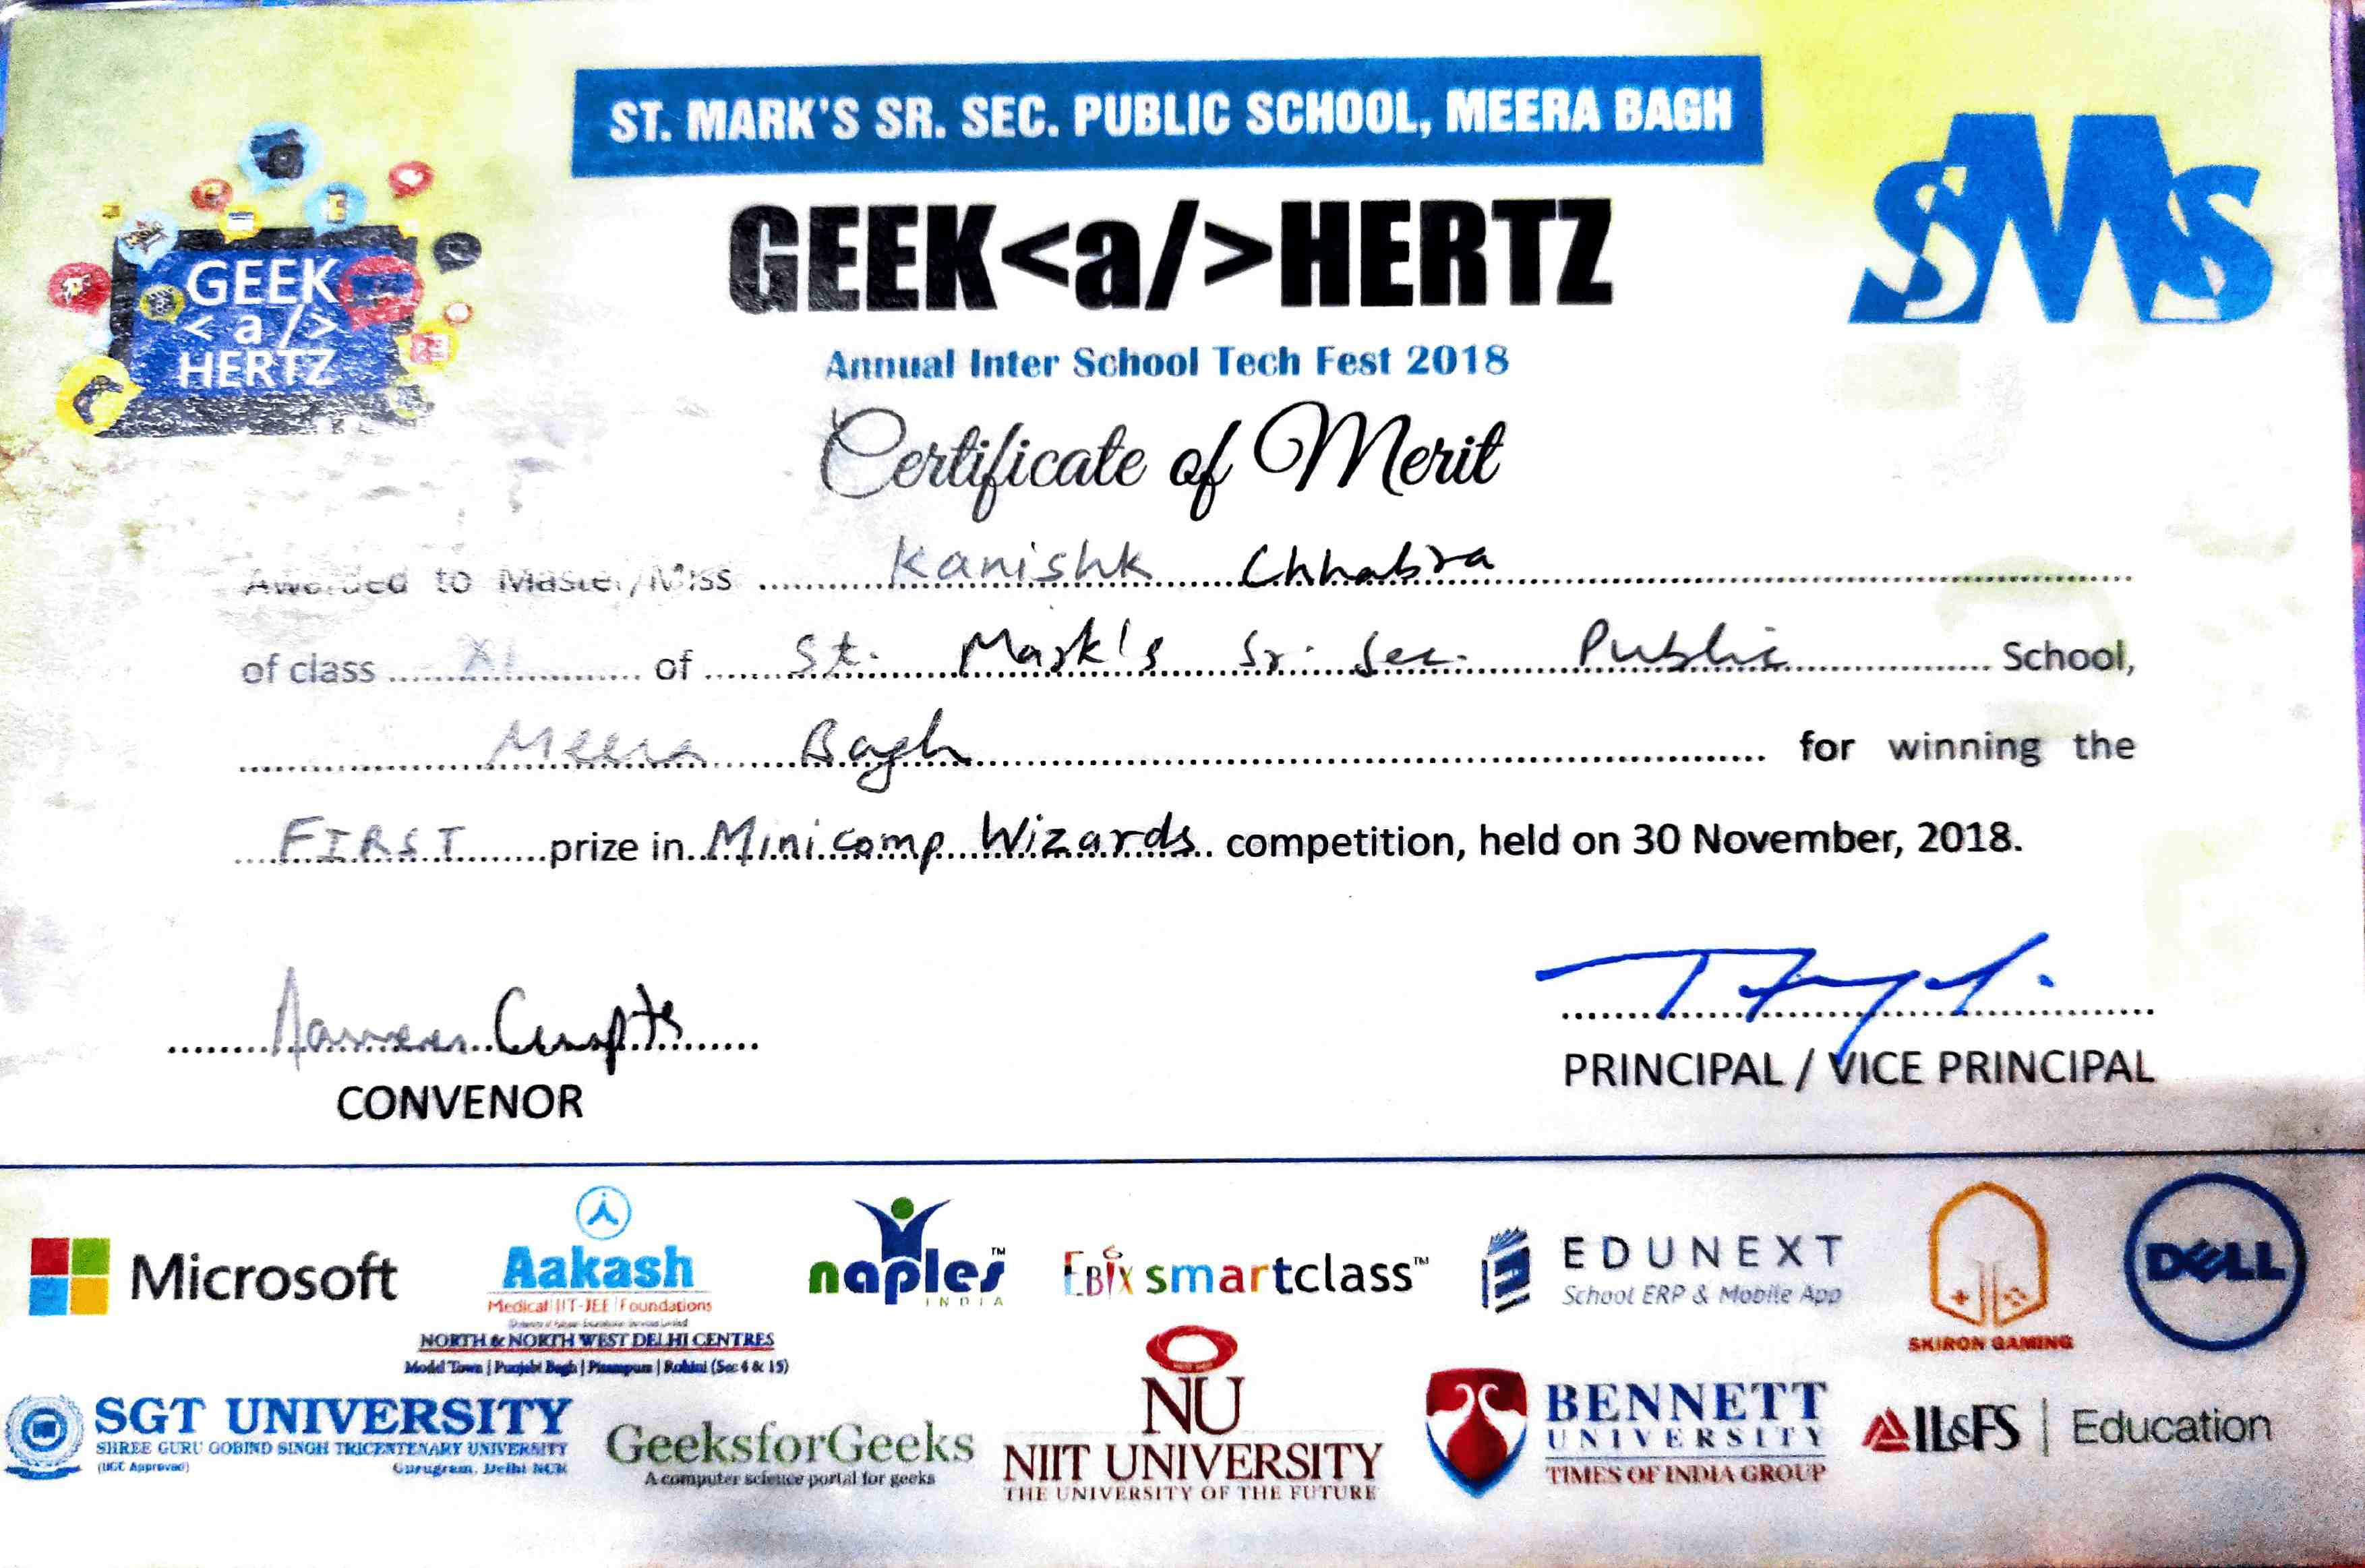 ST. MARK'S SR. SEC. PUBLIC SCHOOL, MEERA BAGH
SMS
GEEK
<a/>
HERTZ
GEEK<a/>HERTZ
Annual Inter School Tech Fest 2018
Certificate of Merit
Awarded to Master/Miss Kanishk Chhabra
of class XI of St. Mark's Sr. Sec. Public School,
Meera Bagh for winning the
FIRST prize in Minicomp Wizards competition, held on 30 November, 2018.
Gupta
CONVENOR
PRINCIPAL / VICE PRINCIPAL
Microsoft
Aakash
Medical | IIT-JEE | Foundations
NORTH & NORTH WEST DELHI CENTRES
Model Town | Punjabi Bagh | Pitampura | Rohini (Sec 4 & 15)
naples™
INDIA
EBIX smartclass™
EDUNEXT
School ERP & Mobile App
SKIRON GAMING
DELL
SGT UNIVERSITY
SHREE GURU GOBIND SINGH TRICENTENARY UNIVERSITY
(UGC Approved) Gurugram, Delhi NCR
GeeksforGeeks
A computer science portal for geeks
NU
NIIT UNIVERSITY
THE UNIVERSITY OF THE FUTURE
BENNETT
UNIVERSITY
TIMES OF INDIA GROUP
IL&FS | Education